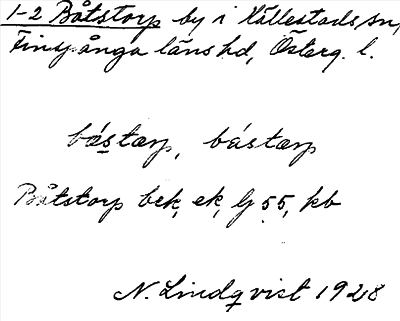 1-2 Båtstorp by i Hällestads sn,
Finspånga läns hd, Österg. l.
båstærp, båstærp
Båtstorp bek, ek, lj 55, kb
N. Lindqvist 1928